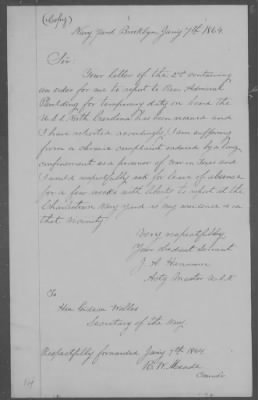 (Copy)
Navy Yard Brooklyn Jany 7th 1864
Sir:
Your letter of the 2d containing
an order for me to report to Rear Admiral
Paulding for temporary duty on board the
U.S.S. North Carolina has been received and
I have reported accordingly, I am suffering
from a chronic complaint induced by a long
confinement as a prisoner of war in Texas and
I would respectfully ask for leave of absence
for a few weeks with leave to report at the
Charlestown Navy Yard as my residence is in
that vicinity.
Very respectfully,
Your obedient Servant
J. A.
Actg Master U.S.N.
To
Hon Gideon Welles
Secretary of the Navy.
Respectfully forwarded Jany 7th 1864
R. W. Meade
Comdr